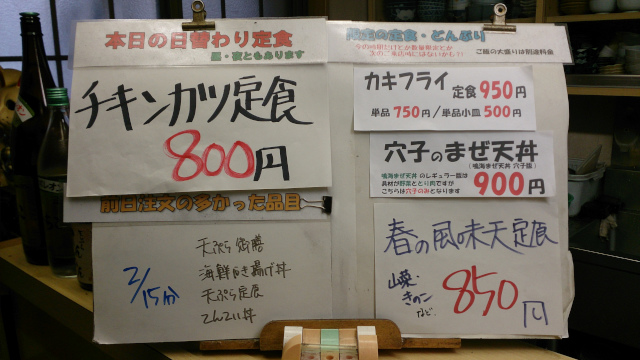 本日の日替わり定食
昼・夜ともあります
チキンカツ定食
800円
前日注文の多かった品目
2/15分
天ぷら御膳
海鮮かき揚げ丼
天ぷら定食
の定食・どんぶり
ご飯の大盛りは別途料金
カキフライ 定食 950円
単品 750円/単品小皿 500円
穴子のまぜ天丼
(鳴海まぜ天丼 穴子版)
鳴海まぜ天丼 のレギュラー版は
具材が野菜ととり肉ですが
こちらは穴子のみとなります
900円
春の風味天定食
山菜・
きのこ
など
850円